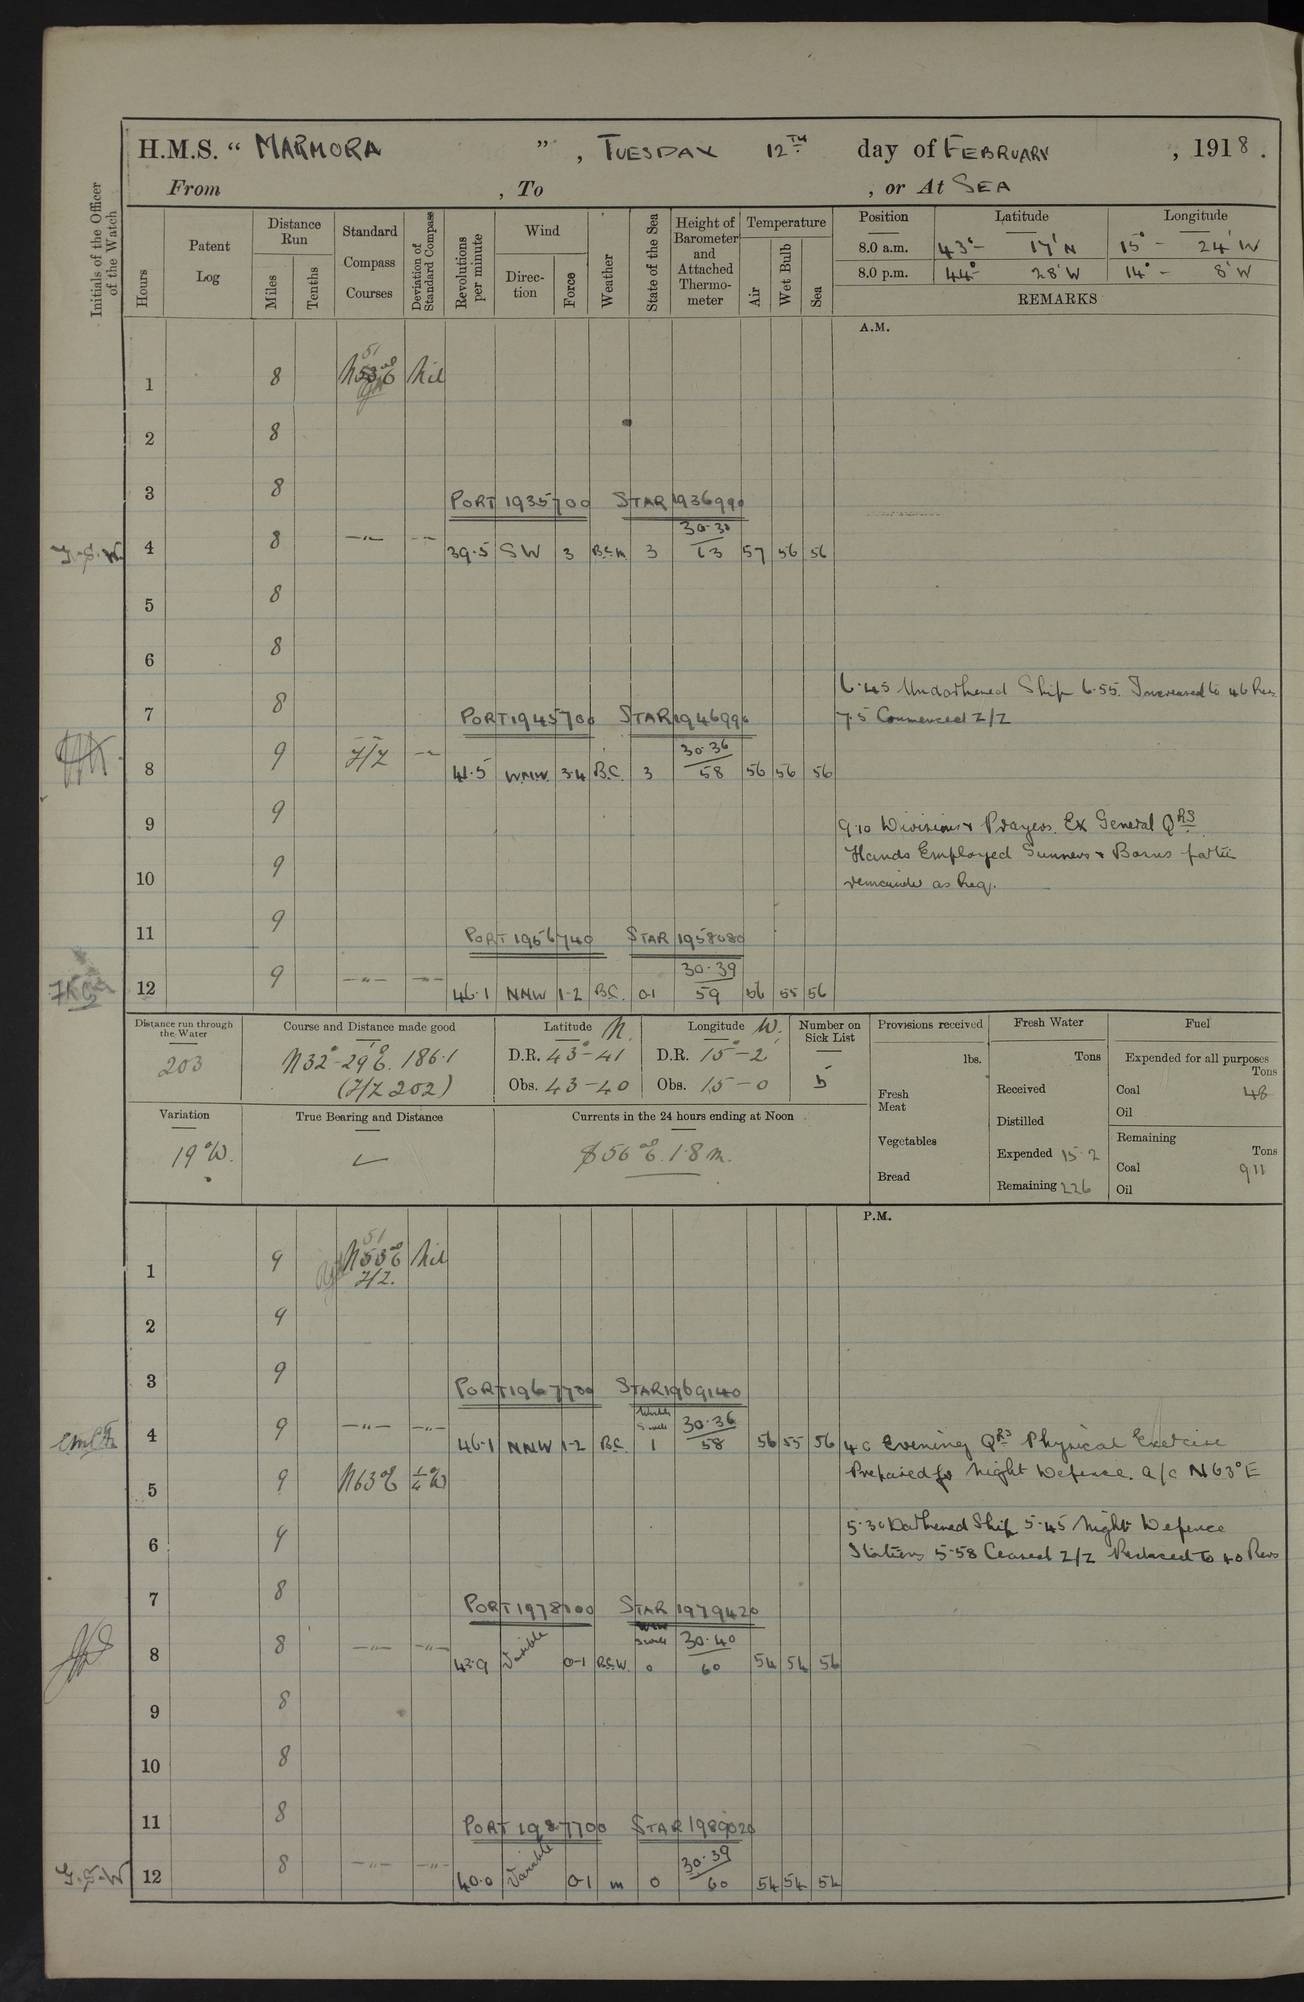 H.M.S. “ MARMORA ” , TUESDAY 12TH day of FEBRUARY , 1918 .
From , To , or At SEA
Initials of the Officer of the Watch
Hours
Patent Log
Distance Run
Miles
Tenths
Standard Compass Courses
Deviation of Standard Compass
Revolutions per minute
Wind
Direc-tion
Force
Weather
State of the Sea
Height of Barometer and Attached Thermo-meter
Temperature
Air
Wet Bulb
Sea
Position Latitude Longitude
8.0 a.m. 43°- 17' N 15° - 24' W
8.0 p.m. 44°- 28' W 14° - 8' W
REMARKS
A.M.
51
1 8 N53°E Nil
2 8
3 8 PORT 1935700 STAR 1936990
30.30
J.S.W. 4 8 —"— —"— 39.5 SW 3 B.C.M. 3 63 57 56 56
5 8
6 8
6.45 Undarkened Ship 6.55. Increased to 46 Revs.
7 8 PORT 1945700 STAR 1946990 7.5 Commenced Z/Z
30.36
8 9 Z/Z —"— 41.5 WNW. 3.4 B.C. 3 58 56 56 56
9 9 9.10 Divisions & Prayers. Ex General QRS
Hands Employed Gunners & Bosns parties
10 9 remainder as Req.
11 9 PORT 1956740 STAR 1958080
30.39
12 9 —"— —"— 46.1 NNW 1-2 B.C. 0-1 59 56 55 56
Distance run through the Water
203
Course and Distance made good
N32°-29'E. 186.1
(Z/Z 202)
Latitude N.
D.R. 43°-41
Obs. 43-40
Longitude W.
D.R. 15°-2
Obs. 15-0
Number on Sick List
5
Variation
19°W.
True Bearing and Distance
Currents in the 24 hours ending at Noon
S 56°E. 1.8 m.
Provisions received
lbs.
Fresh Meat
Vegetables
Bread
Fresh Water
Tons
Received
Distilled
Expended 15.2
Remaining 226
Fuel
Expended for all purposes
Tons
Coal 48
Oil
Remaining
Tons
Coal 911
Oil
P.M.
51
1 9 N53°E Nil
Z/Z.
2 9
3 9 PORT 1967700 STAR 1969140
Swell 30.36
4 9 —"— —"— 46.1 NNW 1-2 B.C. 1 58 56 55 56 4.0 Evening QRS Physical Exercise
5 9 N63°E ¼°W Prepared for Night Defence. a/c N63°E
5.30 Darkened Ship 5.45 Night Defence
6 9 Stations 5.58 Ceased Z/Z Reduced to 40 Revs
7 8 PORT 1978100 STAR 1979420
Swell 30.40
8 8 —"— —"— 43.9 Variable 0-1 B.C.W. 0 60 54 54 56
9 8
10 8
11 8 PORT 1987700 STAR 1989020
30.39
J.S.W 12 8 —"— —"— 40.0 Variable 0-1 m 0 60 54 54 54